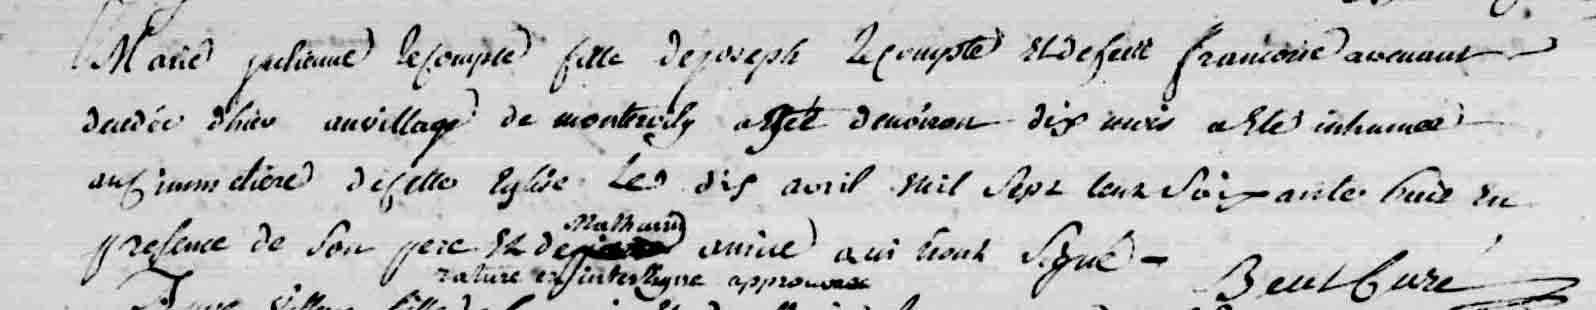 Marie julienne lecompte fille de joseph lecompte Et defeue francoise avenant
decedée d'hier au village de montervily agée denviron dix mois a Eté inhumée
au Cimmetiere de cette Eglise Le dix avril mil Sept Cent Soixante huit En
presence de Son pere Et de Mathurin qui n'ont Signé -
rature et interligne approuvée
Beut Curé